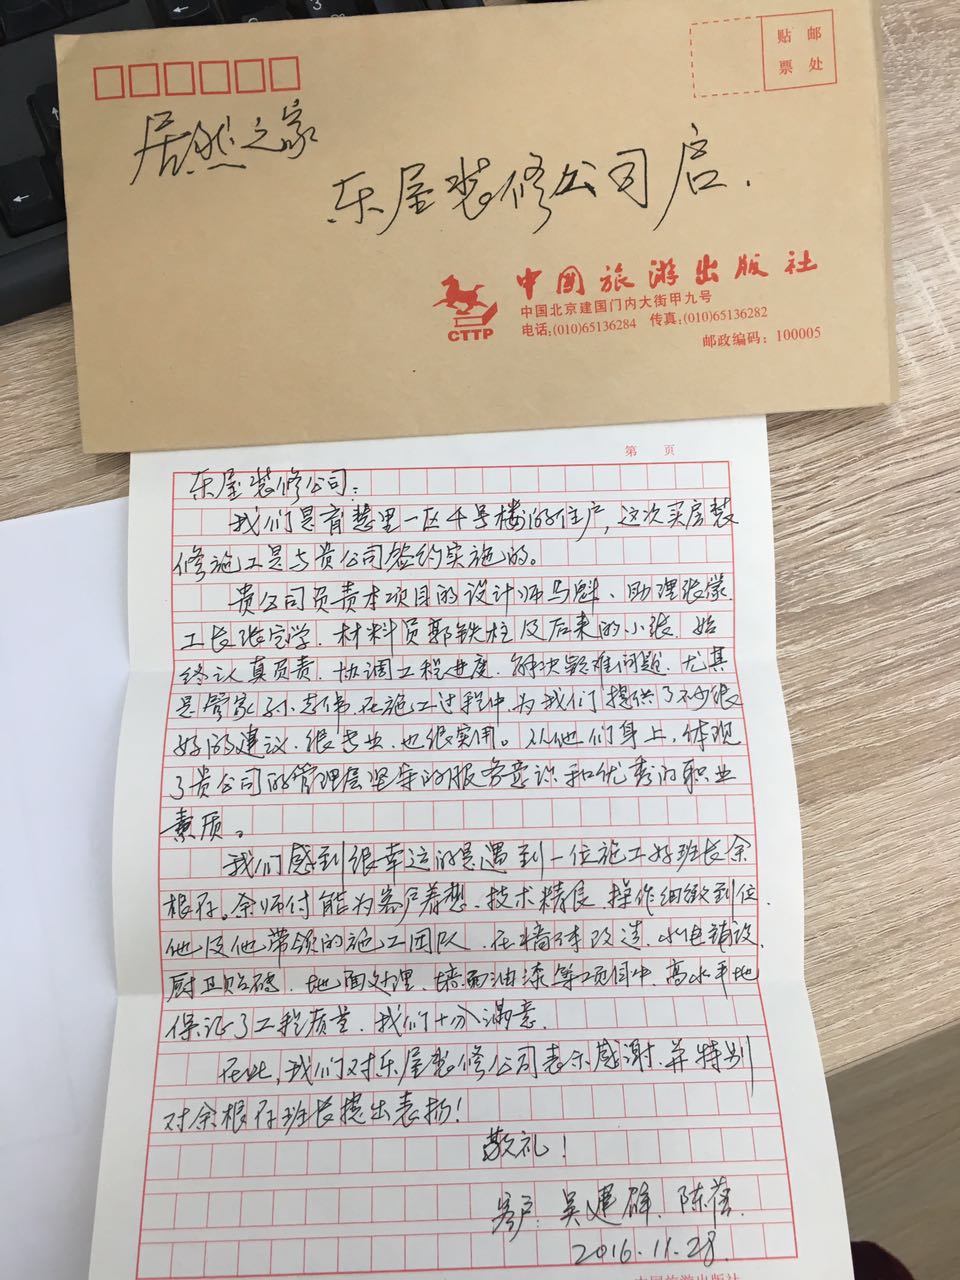 贴 邮
票 处
居然之家
东屋装修公司启.
中国旅游出版社
中国北京建国门内大街甲九号
电话:(010)65136284 传真:(010)65136282
邮政编码：100005
CTTP
第 页
东屋装修公司:
我们是育慧里一区4号楼的住户,这次买房装
修施工是与贵公司签约实施的。
贵公司负责本项目的设计师马魁、助理张
工长张宝学、材料员郭铁柱及后来的小张,始
终认真负责,协调工程进度,解决疑难问题,尤其
是管家孙志伟,在施工过程中,为我们提供了不少很
好的建议,很专业,也很实用。从他们身上,体现
了贵公司的管理层坚守的服务意识和优秀的职业
素质。
我们感到很幸运的是遇到一位施工好班长余
根存。余师付能为客户着想,技术精良,操作细致到位,
他及他带领的施工团队,在墙体改造,水电铺设,
厨卫贴砖,地面处理,墙面油漆等项目中,高水平地
保证了工程质量,我们十分满意.
在此,我们对东屋装修公司表示感谢,并特别
对余根存班长提出表扬!
敬礼!
客户:吴建雄、陈蓓.
2016.11.28.
中国旅游出版社